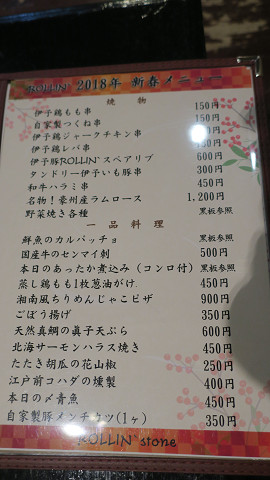 ROLLIN' 2018年 新春メニュー
焼 物
伊予鶏もも串 150円
自家製つくね串 150円
伊予鶏ジャークチキン串 150円
伊予鶏レバ串 150円
伊予豚ROLLIN'スペアリブ 600円
タンドリー伊予いも豚串 300円
和牛ハラミ串 450円
名物!豪州産ラムロース 1,200円
野菜焼き各種 黒板参照
一 品 料 理
鮮魚のカルパッチョ 黒板参照
国産牛のセンマイ刺 500円
本日のあったか煮込み(コンロ付) 黒板参照
蒸し鶏もも1枚葱油がけ 450円
湘南風ちりめんじゃこピザ 900円
ごぼう揚げ 350円
天然真鯛の真子天ぷら 600円
北海サーモンハラス焼き 450円
たたき胡瓜の花山椒 250円
江戸前コハダの燻製 400円
本日の〆青魚 450円
自家製豚メンチカツ(1ヶ) 350円
ROLLIN' stone